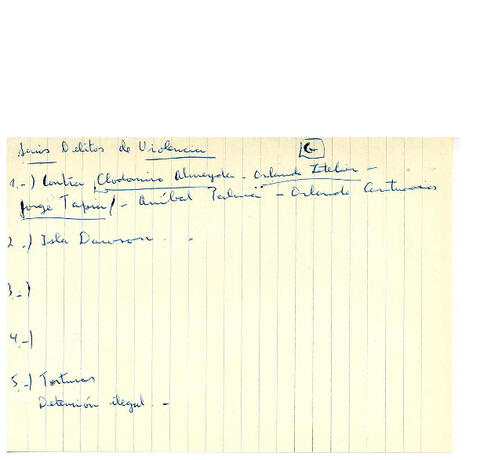 Serios Delitos de Violencia G
1.-) Contra Clodomiro Almeyda - Orlando Letelier -
Jorge Tapia / - Aníbal Palma - Orlando Cantuarias
2.-) Isla Dawson. -
3.-)
4.-)
5.-) Torturas
Detención ilegal. -